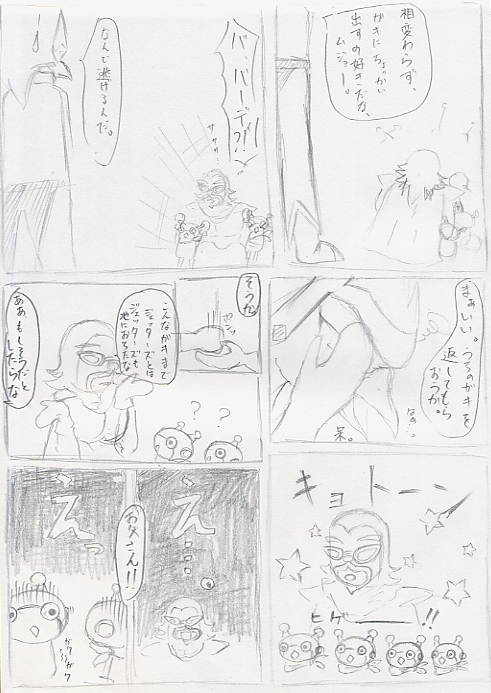 相変わらず、
ガキにちょっかい
出すの好きだな、
ムジョー。
バ、バーディ?!!
ササササ…
なんで逃げるんだ。
まぁいい。うちのガキを
返してもら
おうか。
はぁ…
呆。
そうか
ヤンッ
こんなガキまで
ジェッターズとは
ジェッターズも
地におちたな
ああもしそうだと
したらな
?
?
キョトーン
ヒゲー!!
え…
お父さん!!
えっ
ガクガク